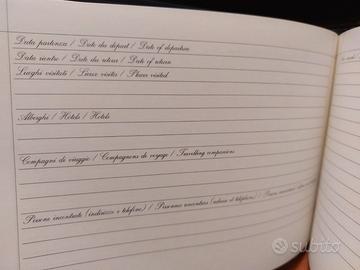 Data partenza / Date du départ / Date of departure
Data rientro / Date du retour / Date of return
Luoghi visitati / Lieux visités / Places visited
Alberghi / Hôtels / Hotels
Compagni di viaggio / Compagnons de voyage / Travelling companions
Persone incontrate (indirizzo e telefono) / Personnes rencontrées (adresse et téléphone) / Persons
subito